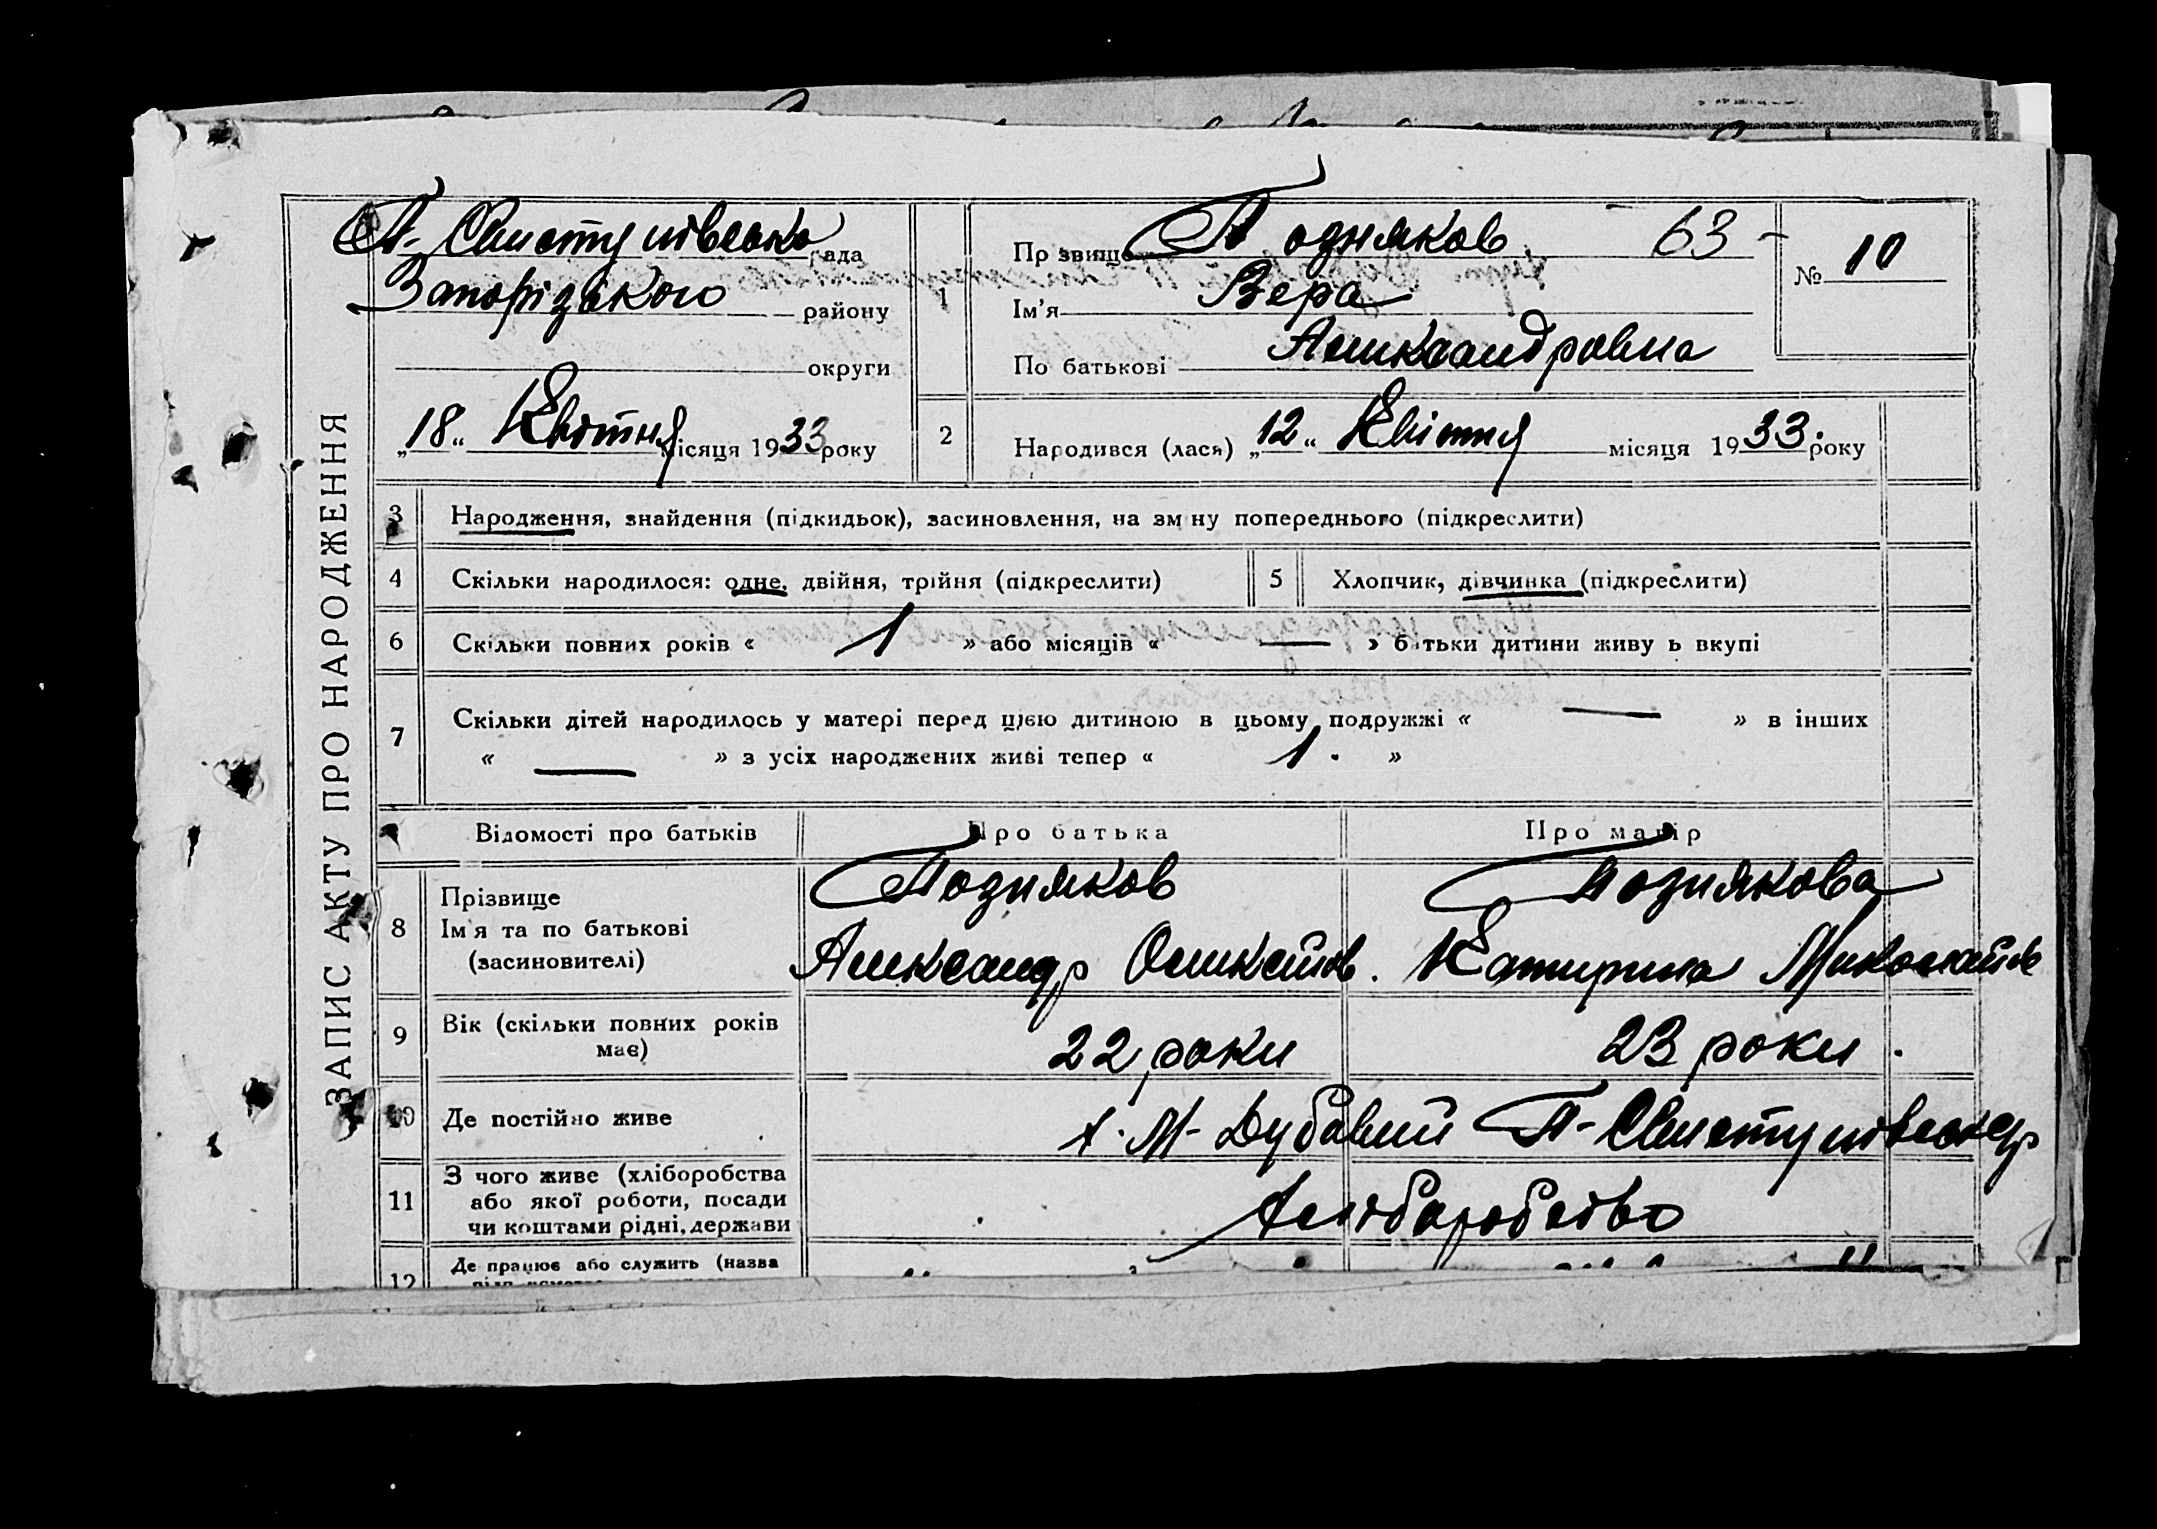 П- Свистунівська рада
Запорізького району
округи
„18“ Квітня місяця 1933 року
ЗАПИС АКТУ ПРО НАРОДЖЕННЯ
1
Пр звище Подняков 63 -
Ім'я Вера
По батькові Александровна
№ 10
2 Народився (лася) „12“ Квітня місяця 1933. року
3 Народження, знайдення (підкидьок), засиновлення, на зм ну попереднього (підкреслити)
4 Скільки народилося: одне, двійня, трійня (підкреслити) 5 Хлопчик, дівчинка (підкреслити)
6 Скільки повних років « 1 » або місяців « — » б тьки дитини живу ь вкупі
7 Скільки дітей народилось у матері перед цією дитиною в цьому подружжі « — » в інших
« — » з усіх народжених живі тепер « 1. »
Відомості про батьків Про батька Про матір
8 Прізвище
Ім'я та по батькові
(засиновителі)
Позняков
Александр Олексійов.
Познякова
Катирина Миколайов
9 Вік (скільки повних років
має)
22 роки 23 роки.
10 Де постійно живе х. М- Дубовий П- Свистунівської ср
11 З чого живе (хліборобства
або якої роботи, посади
чи коштами рідні, держави
Хліборобство
12 Де працює або служить (назва